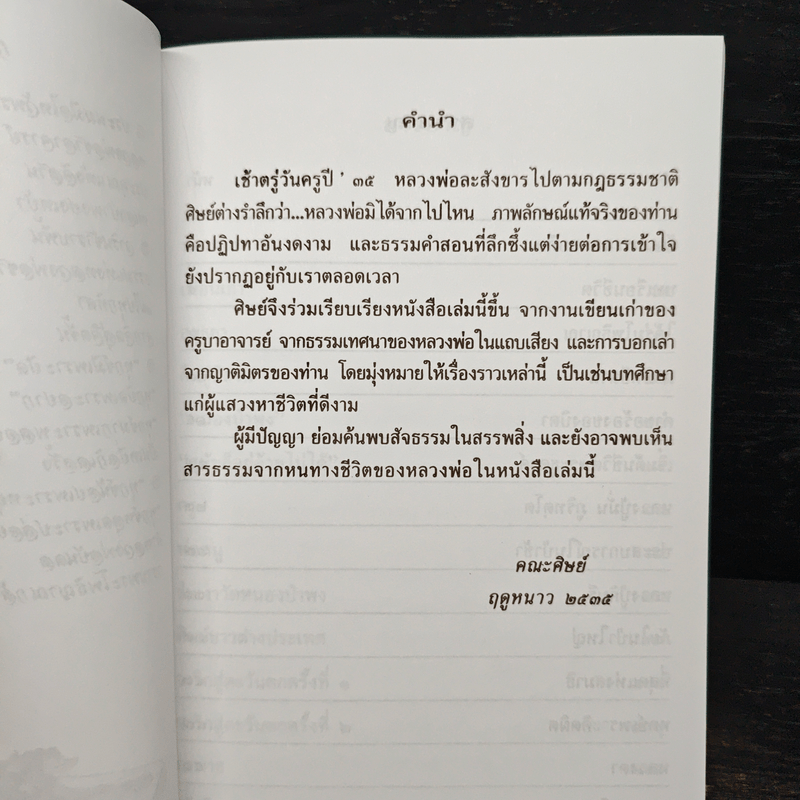 คำนำ
เช้าตรู่วันครูปี '๓๕ หลวงพ่อละสังขารไปตามกฎธรรมชาติ
ศิษย์ต่างรำลึกว่า...หลวงพ่อมิได้จากไปไหน ภาพลักษณ์แท้จริงของท่าน
คือปฏิปทาอันงดงาม และธรรมคำสอนที่ลึกซึ้งแต่ง่ายต่อการเข้าใจ
ยังปรากฏอยู่กับเราตลอดเวลา
ศิษย์จึงร่วมเรียบเรียงหนังสือเล่มนี้ขึ้น จากงานเขียนเก่าของ
ครูบาอาจารย์ จากธรรมเทศนาของหลวงพ่อในแถบเสียง และการบอกเล่า
จากญาติมิตรของท่าน โดยมุ่งหมายให้เรื่องราวเหล่านี้ เป็นเช่นบทศึกษา
แก่ผู้แสวงหาชีวิตที่ดีงาม
ผู้มีปัญญา ย่อมค้นพบสัจธรรมในสรรพสิ่ง และยังอาจพบเห็น
สารธรรมจากหนทางชีวิตของหลวงพ่อในหนังสือเล่มนี้
คณะศิษย์
ฤดูหนาว ๒๕๓๕